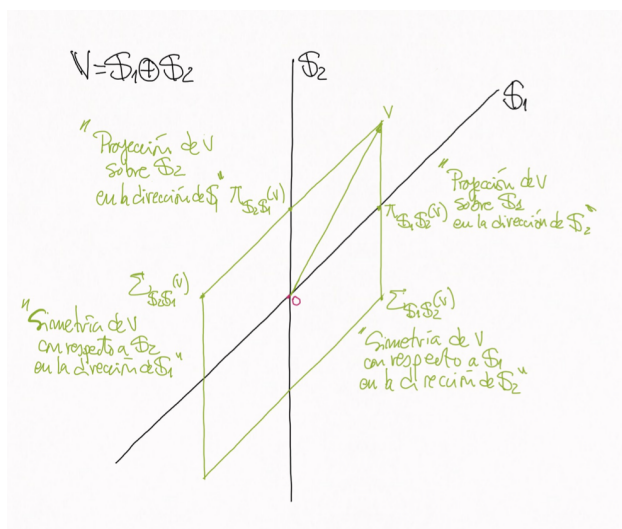 𝕍=𝕊₁⊕𝕊₂
𝕊₂
𝕊₁
v
"Proyección de v
sobre 𝕊₂
en la dirección de 𝕊₁"
π𝕊₂𝕊₁(v)
"Proyección de v
sobre 𝕊₁
en la dirección de 𝕊₂"
π𝕊₁𝕊₂(v)
Σ𝕊₂𝕊₁(v)
"Simetría de v
con respecto a 𝕊₂
en la dirección de 𝕊₁"
0
Σ𝕊₁𝕊₂(v)
"Simetría de v
con respecto a 𝕊₁
en la dirección de 𝕊₂"